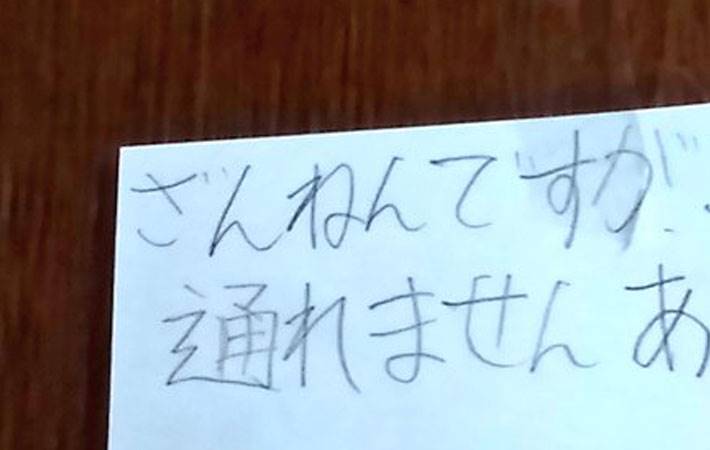 ざんねんですが、
通れません あ